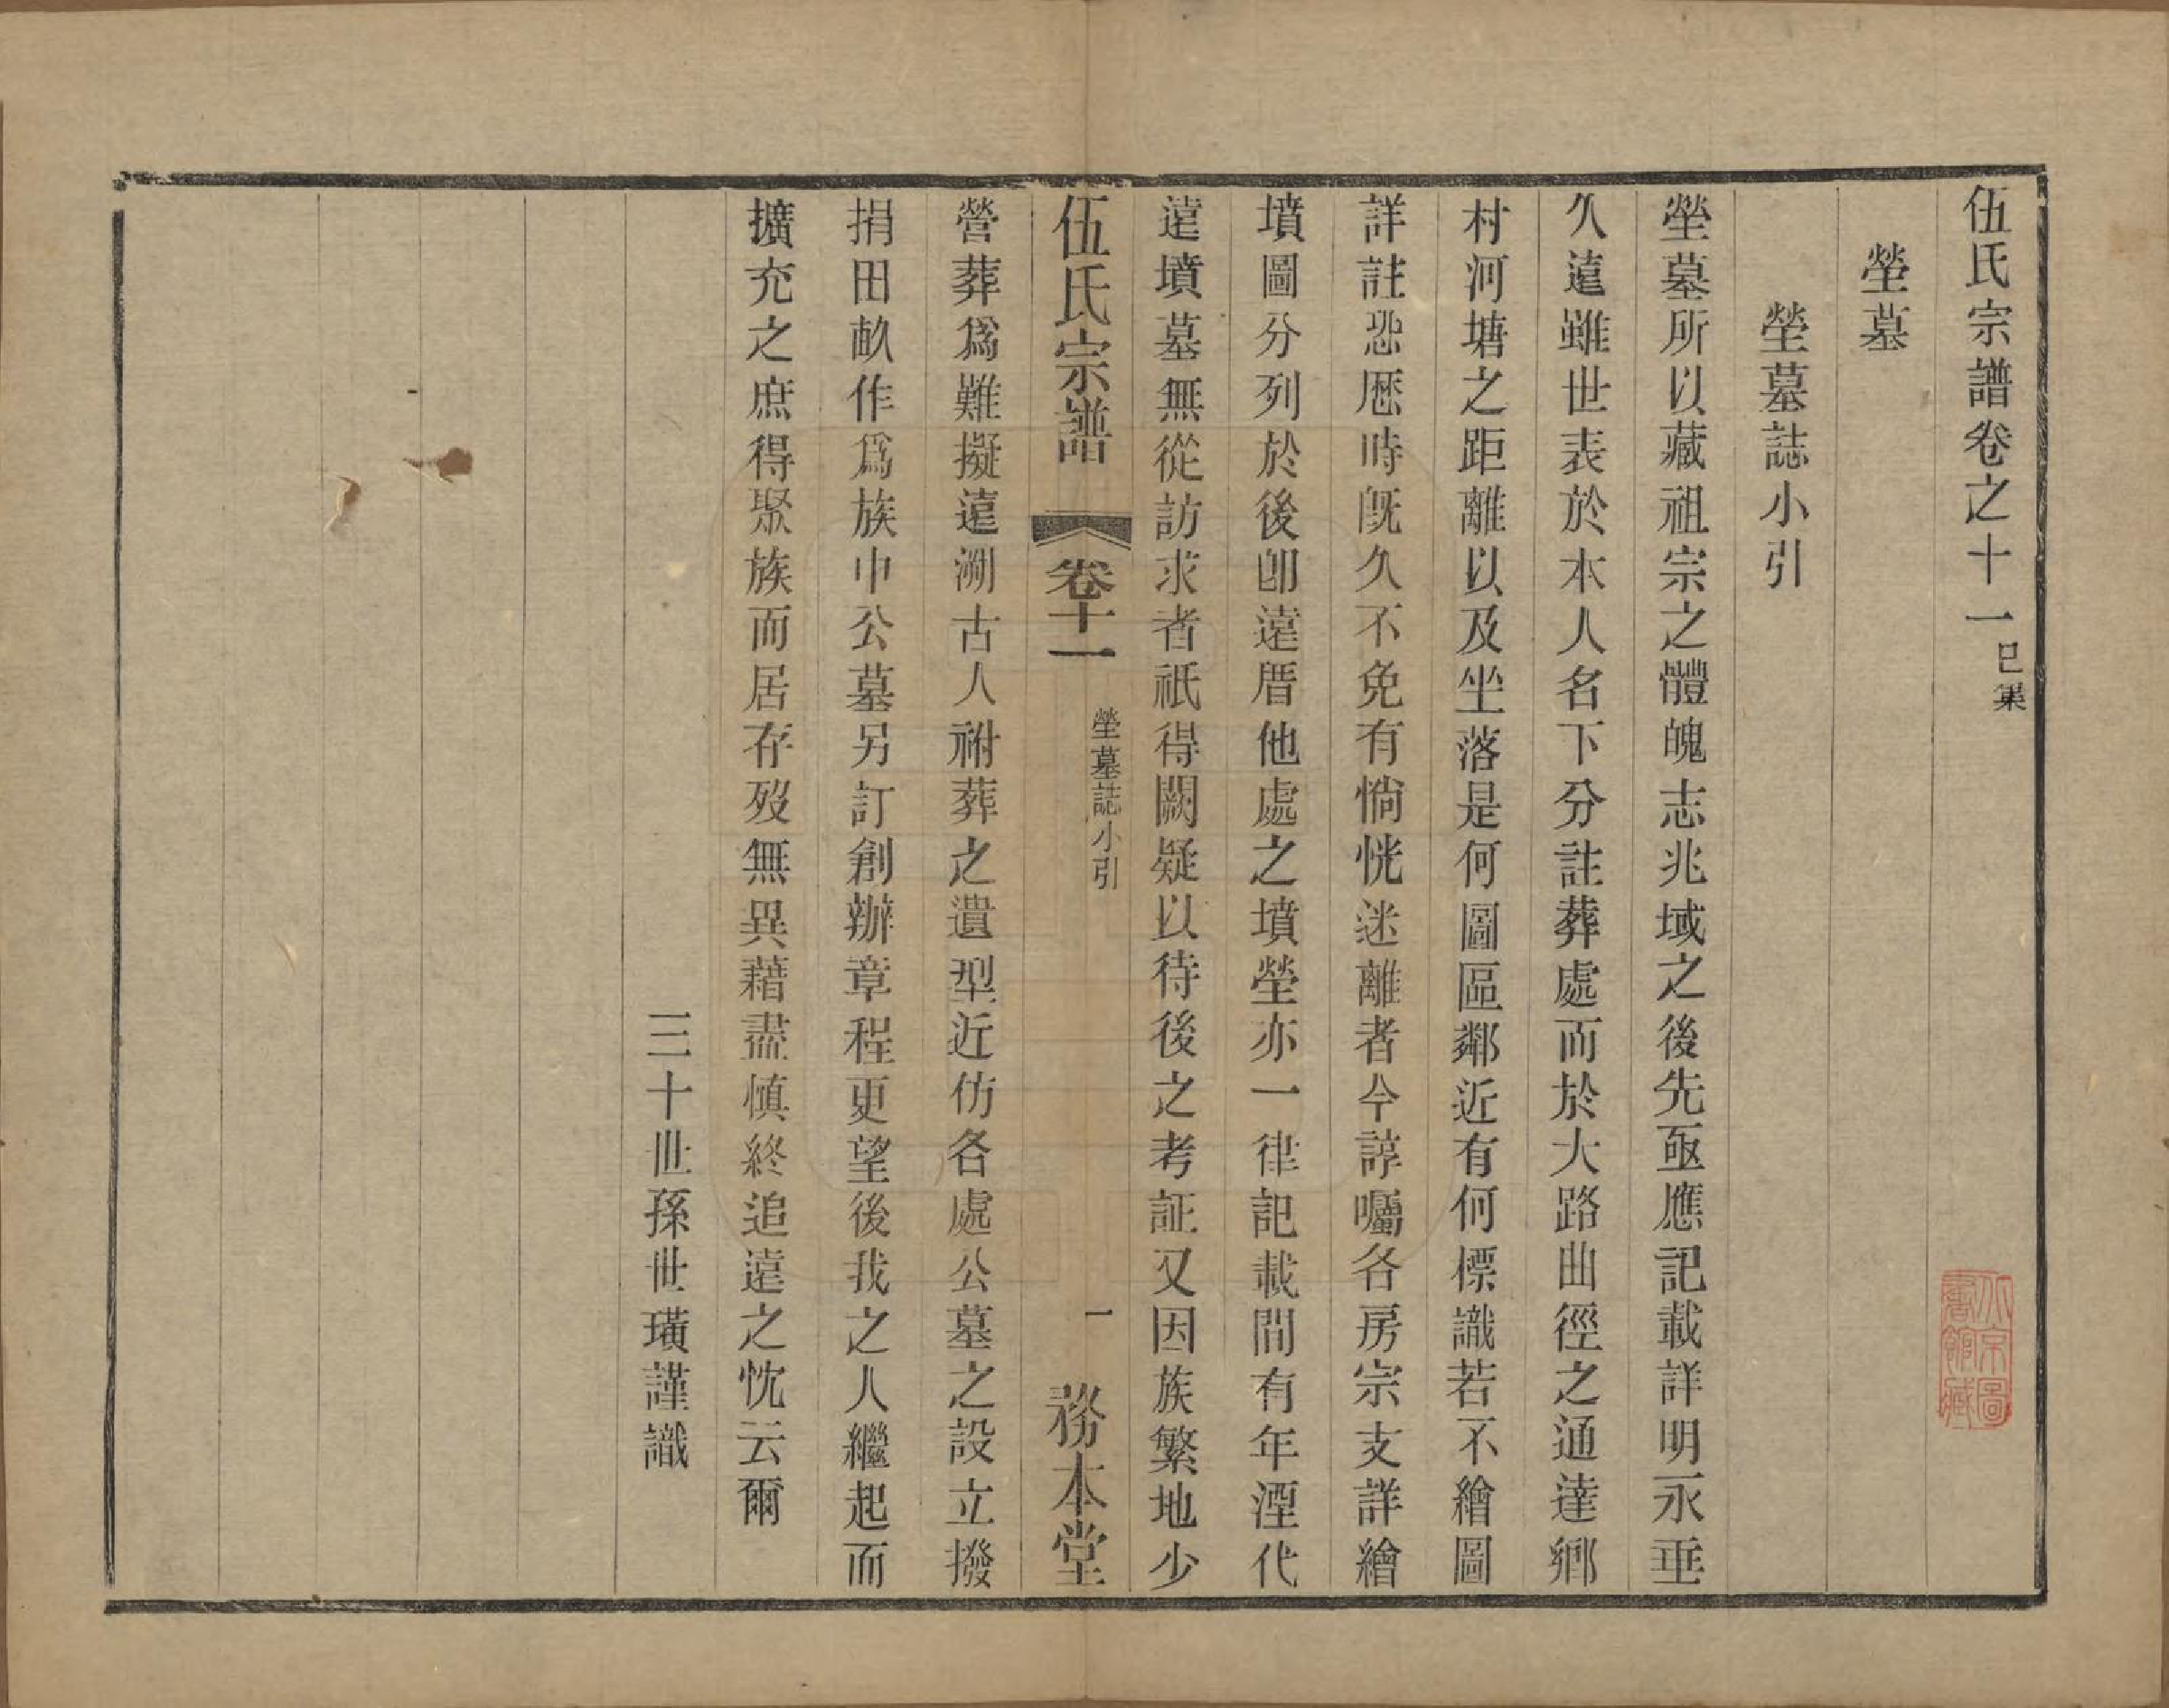 伍氏宗譜卷之十一 巳集
塋墓
塋墓誌小引
塋墓所以藏祖宗之體魄志兆域之後先亟應記載詳明永垂
久遠雖世表於本人名下分註葬處而於大路曲徑之通達鄉
村河塘之距離以及坐落是何圖區鄰近有何標識若不繪圖
詳註恐歷時既久不免有惝恍迷離者今諄囑各房宗支詳繪
墳圖分列於後卽遠厝他處之墳塋亦一律記載間有年湮代
遠墳墓無從訪求者祇得闕疑以待後之考証又因族繁地少
伍氏宗譜 卷十一 塋墓誌小引 一 務本堂
營葬爲難擬遠溯古人祔葬之遺型近仿各處公墓之設立撥
捐田畝作爲族中公墓另訂創辦章程更望後我之人繼起而
擴充之庶得聚族而居存歿無異藉盡慎終追遠之忱云爾
三十世孫世璜謹識
北京圖
書館藏